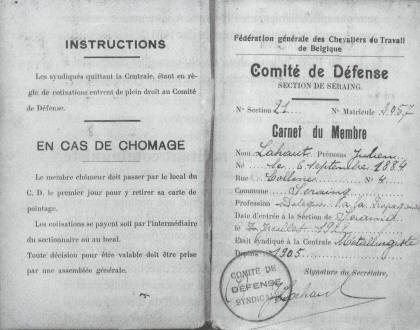 INSTRUCTIONS
Les syndiqués quittant la Centrale, étant en rè-
gle de cotisations entrent de plein droit au Comité
de Défense.
EN CAS DE CHOMAGE
Le membre chômeur doit passer par le local du
C. D. le premier jour pour y retirer sa carte de
pointage.
Les cotisations se payent soit par l'intermédiaire
du sectionnaire ou au local.
Toute décision pour être valable doit être prise
par une assemblée générale.
Fédération générale des Chevaliers du Travail
de Belgique
Comité de Défense
SECTION DE SERAING.
N° Section 21 N° Matricule 3057
Carnet du Membre
Nom Lahaut Prénoms Julien
Né le 6 septembre 1884
Rue Collines N° 4
Commune Seraing
Profession Délégué
Date d'entrée à la Section de Seraing
le juillet
Etait syndiqué à la Centrale Métallurgiste
Depuis 1905
Signature du Secrétaire,
COMITÉ DE
DÉFENSE
SYNDICALE